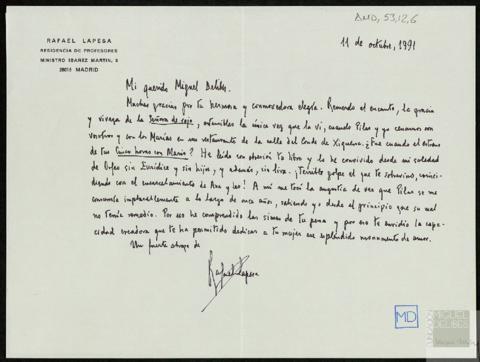 AMD, 53,12,6
RAFAEL LAPESA
RESIDENCIA DE PROFESORES
MINISTRO IBAÑEZ MARTIN, 3
28015 MADRID
11 de octubre, 1991
Mi querido Miguel Delibes:
Muchas gracias por tu hermosa y conmovedora elegía. Recuerdo el encanto, la gracia
y viveza de la Señora de rojo, ostensibles la única vez que la vi, cuando Pilar y yo cenamos con
vosotros y con los Marías en un restaurante de la calle del Conde de Xiquena. ¿Fue cuando el estreno
de tus Cinco horas con Mario? He leído con obsesión tu libro y lo he convivido desde mi soledad
de Orfeo sin Eurídice y sin hijos, y además, sin lira. ¡Terrible golpe el que te sobrevino, coinci-
diendo con el encarcelamiento de Ana y Leo! A mí me tocó la angustia de ver que Pilar se me
consumía implacablemente a lo largo de once años, sabiendo yo desde el principio que su mal
no tenía remedio. Por eso he comprendido las simas de tu pena y por eso te envidio la capa-
cidad creadora que te ha permitido dedicar a tu mujer ese espléndido monumento de amor.
Un fuerte abrazo de
Rafael Lapesa
MD
FUNDACIÓN
MIGUEL
DELIBES